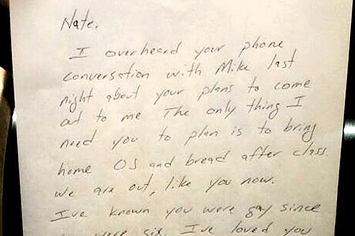 Nate,
I overheard your phone
conversation with Mike last
night about your plans to come
out to me The only thing I
need you to plan is to bring
home OJ and bread after class.
We are out, like you now.
I've known you were gay since
were six. I've loved you